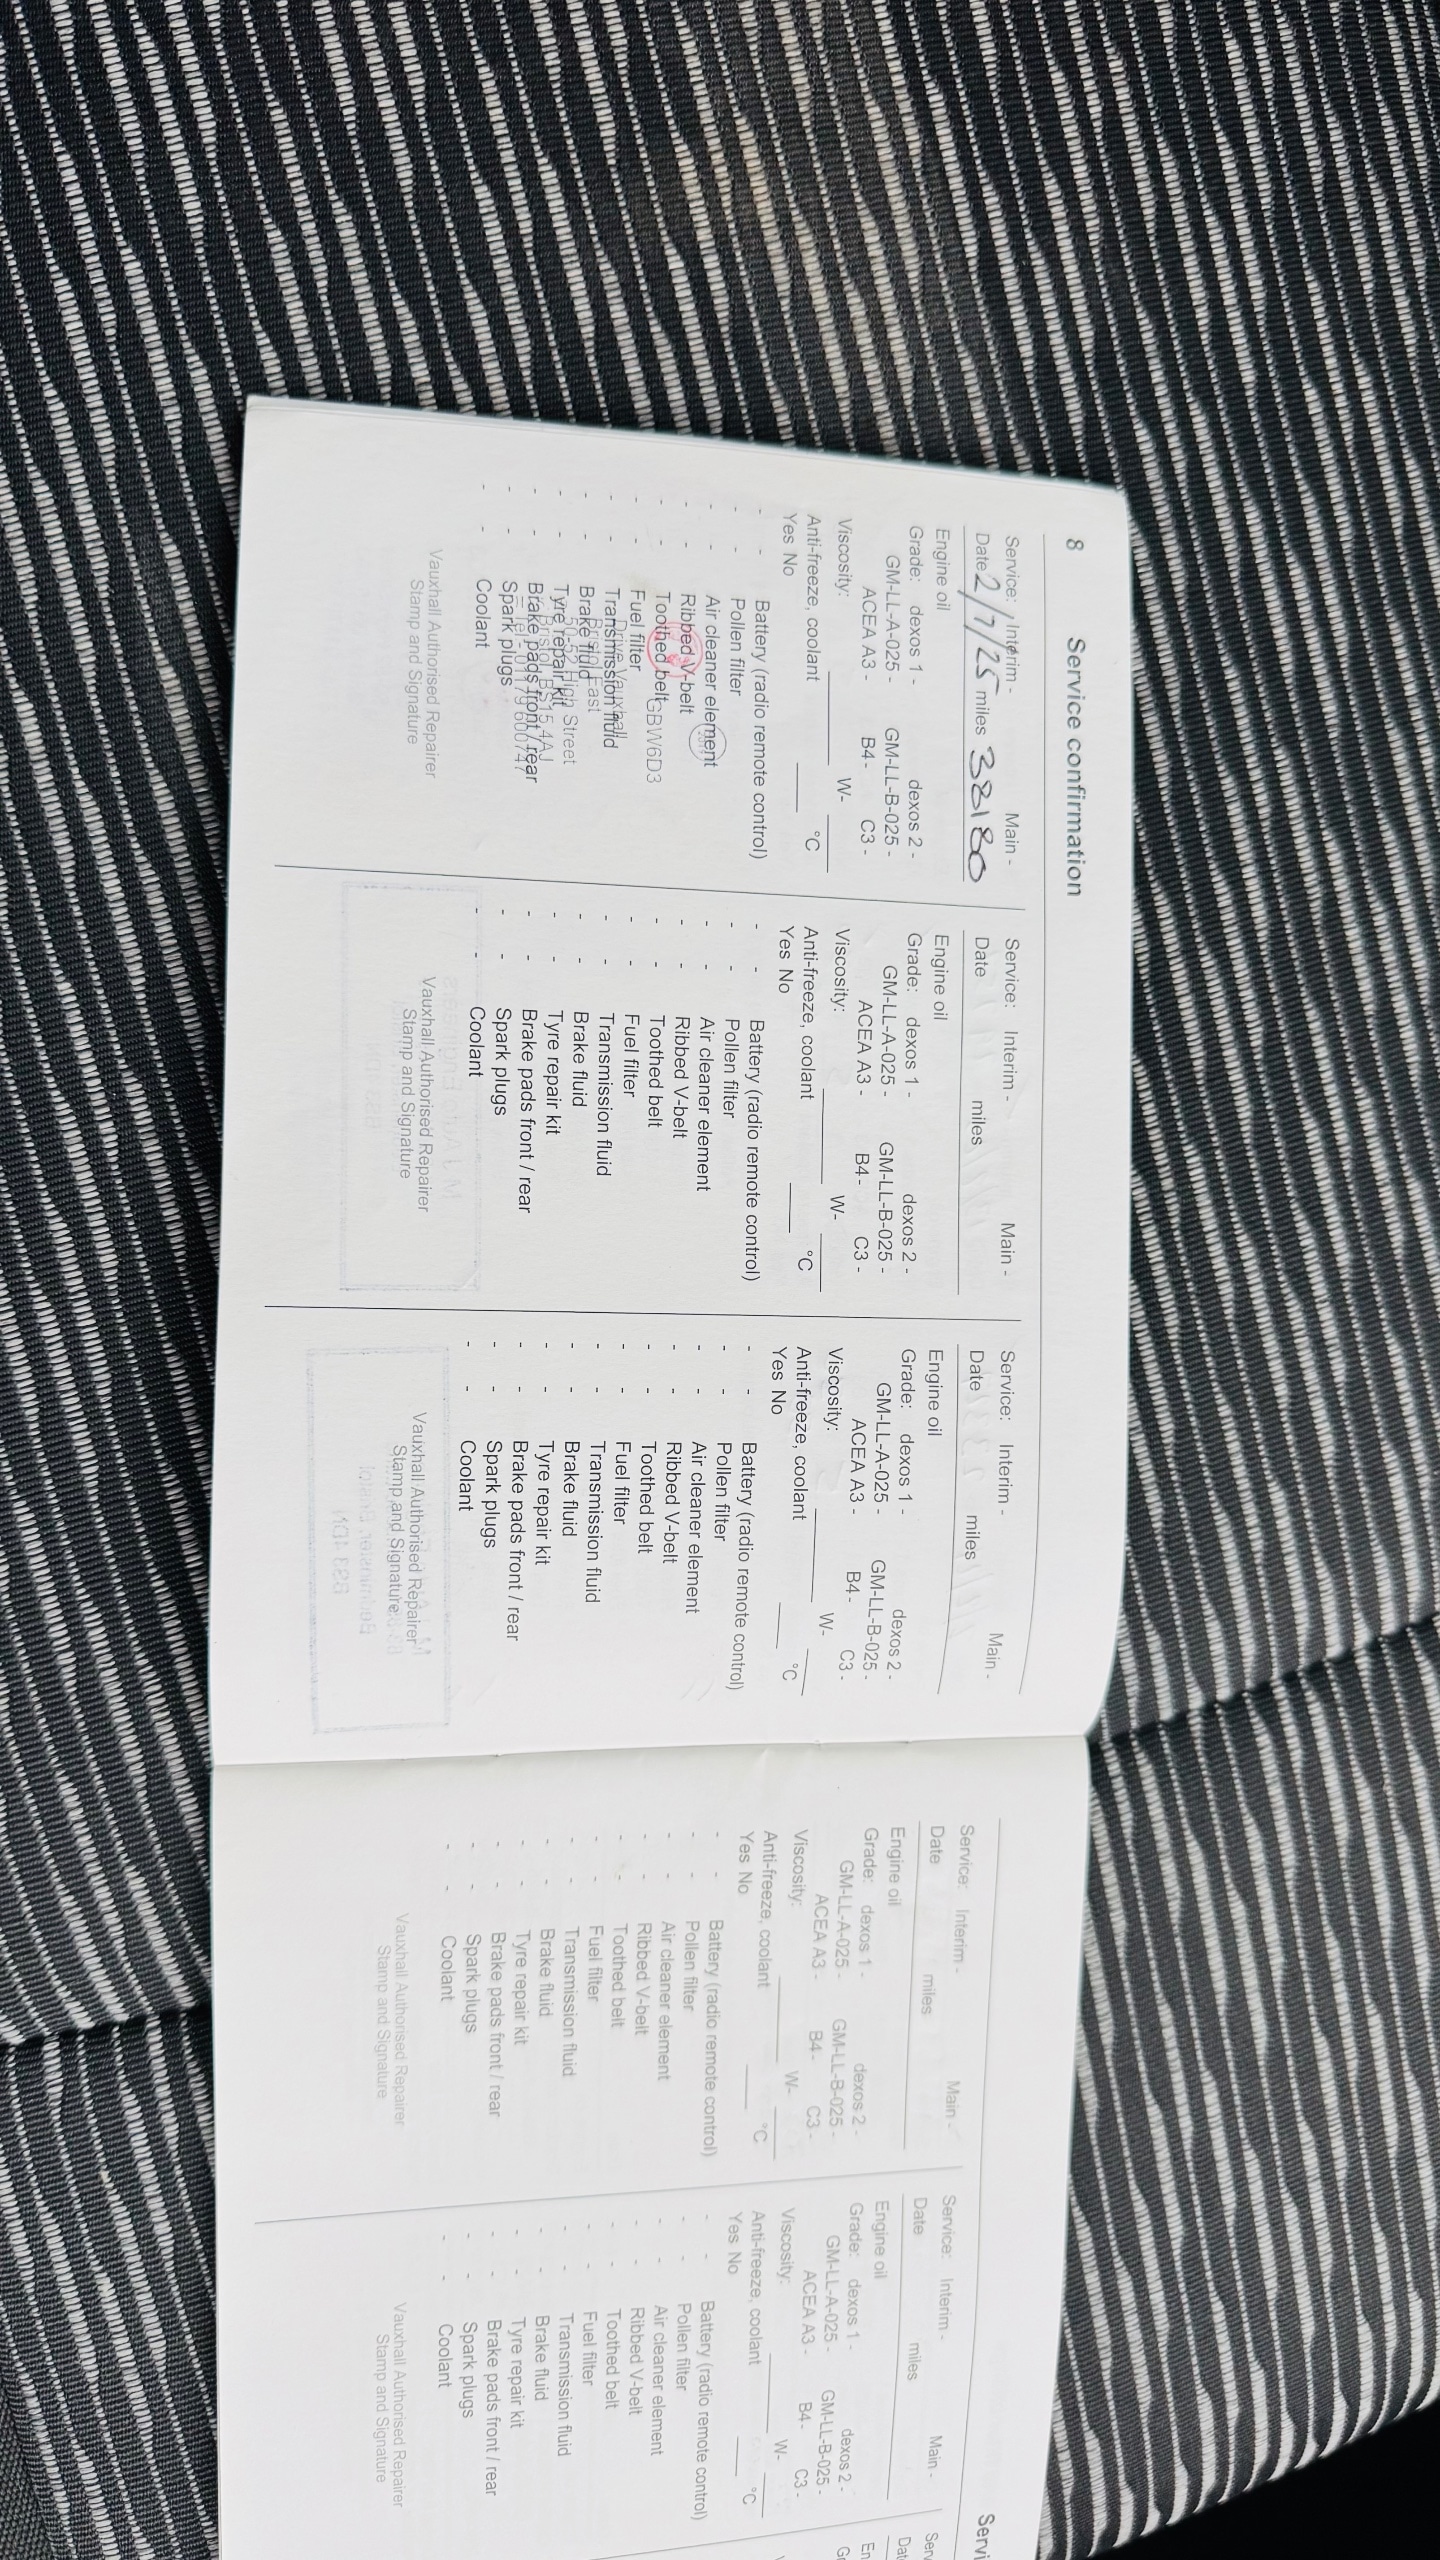 8
Service confirmation
Service: Interim - Main -
Date 2/7/25 miles 38180
Engine oil
Grade: dexos 1 - dexos 2 -
GM-LL-A-025 - GM-LL-B-025 -
ACEA A3 - B4 - C3 -
Viscosity: W-
Anti-freeze, coolant °C
Yes No
- - Battery (radio remote control)
- - Pollen filter
- - Air cleaner element
- - Ribbed V-belt
- - Toothed belt
GBW6D3
- - Fuel filter
- - Transmission fluid
Drive Vauxhall
Bristol East
- - Brake fluid
50-52 High Street
- - Tyre repair kit
Bristol BS15 4AJ
- - Brake pads front / rear
- - Spark plugs
- - Coolant
Vauxhall Authorised Repairer
Stamp and Signature
Service: Interim - Main -
Date miles
Engine oil
Grade: dexos 1 - dexos 2 -
GM-LL-A-025 - GM-LL-B-025 -
ACEA A3 - B4 - C3 -
Viscosity: W-
Anti-freeze, coolant °C
Yes No
- - Battery (radio remote control)
- - Pollen filter
- - Air cleaner element
- - Ribbed V-belt
- - Toothed belt
- - Fuel filter
- - Transmission fluid
- - Brake fluid
- - Tyre repair kit
- - Brake pads front / rear
- - Spark plugs
- - Coolant
Vauxhall Authorised Repairer
Stamp and Signature
Service: Interim - Main -
Date miles
Engine oil
Grade: dexos 1 - dexos 2 -
GM-LL-A-025 - GM-LL-B-025 -
ACEA A3 - B4 - C3 -
Viscosity: W-
Anti-freeze, coolant °C
Yes No
- - Battery (radio remote control)
- - Pollen filter
- - Air cleaner element
- - Ribbed V-belt
- - Toothed belt
- - Fuel filter
- - Transmission fluid
- - Brake fluid
- - Tyre repair kit
- - Brake pads front / rear
- - Spark plugs
- - Coolant
Vauxhall Authorised Repairer
Stamp and Signature
Servi
Service: Interim - Main -
Date miles
Engine oil
Grade: dexos 1 - dexos 2 -
GM-LL-A-025 - GM-LL-B-025 -
ACEA A3 - B4 - C3 -
Viscosity: W-
Anti-freeze, coolant °C
Yes No
- - Battery (radio remote control)
- - Pollen filter
- - Air cleaner element
- - Ribbed V-belt
- - Toothed belt
- - Fuel filter
- - Transmission fluid
- - Brake fluid
- - Tyre repair kit
- - Brake pads front / rear
- - Spark plugs
- - Coolant
Vauxhall Authorised Repairer
Stamp and Signature
Service: Interim - Main -
Date miles
Engine oil
Grade: dexos 1 - dexos 2 -
GM-LL-A-025 - GM-LL-B-025 -
ACEA A3 - B4 - C3 -
Viscosity: W-
Anti-freeze, coolant °C
Yes No
- - Battery (radio remote control)
- - Pollen filter
- - Air cleaner element
- - Ribbed V-belt
- - Toothed belt
- - Fuel filter
- - Transmission fluid
- - Brake fluid
- - Tyre repair kit
- - Brake pads front / rear
- - Spark plugs
- - Coolant
Vauxhall Authorised Repairer
Stamp and Signature
Serv
Dat
En
G